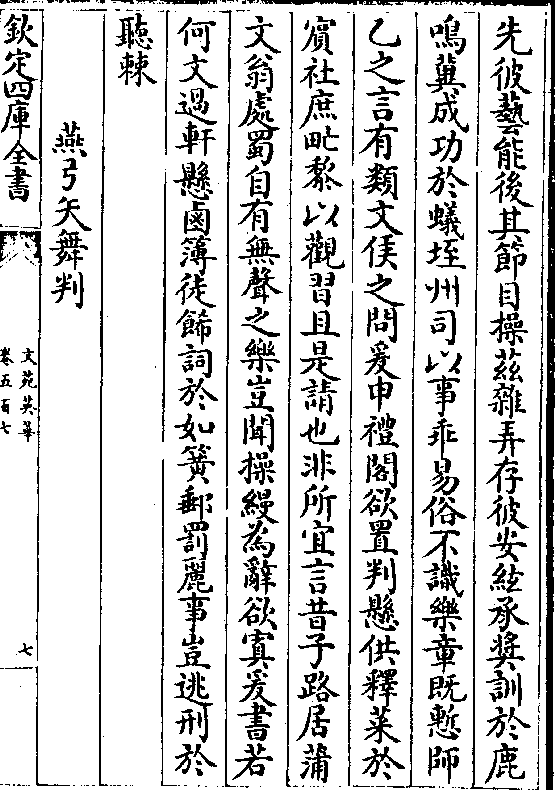 先彼藝能後其節目操茲雜弄存彼安絃承奨訓於鹿
鳴冀成功於蟻垤州司以事乖易俗不識樂章既慙師
乙之言有類文侯之問爰申禮閣欲置判懸供釋菜於
賔社庶甿黎以觀習且是請也非所宜言昔子路居蒲
文翁處蜀自有無聲之樂豈聞操縵為辭欲寘爰書若
何文過軒懸鹵簿徒餙詞於如簧郵罰麗事豈逃刑於
聽棘
燕弓矢舞判
欽定四庫全書
文苑英華
卷五百七
七